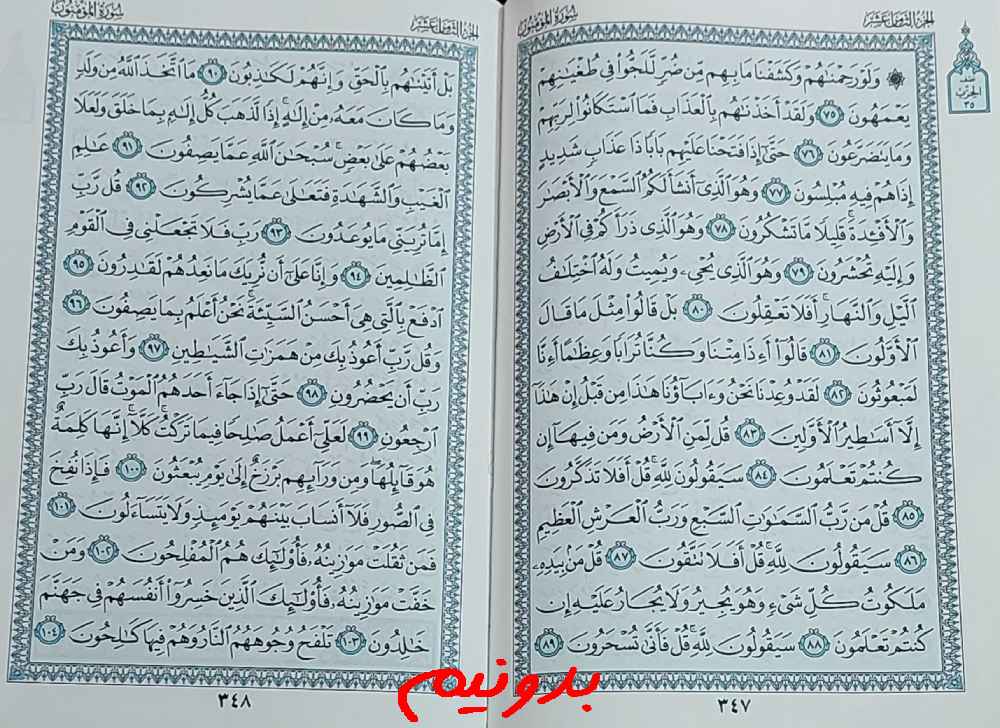 الجزء الثامن عشر
سورة المؤمنون
نصف
الحزب
٣٥
۞ وَلَوْ رَحِمْنَٰهُمْ وَكَشَفْنَا مَا بِهِم مِّن ضُرٍّ لَّلَجُّوا۟ فِى طُغْيَٰنِهِمْ
يَعْمَهُونَ ٧٥ وَلَقَدْ أَخَذْنَٰهُم بِٱلْعَذَابِ فَمَا ٱسْتَكَانُوا۟ لِرَبِّهِمْ
وَمَا يَتَضَرَّعُونَ ٧٦ حَتَّىٰٓ إِذَا فَتَحْنَا عَلَيْهِم بَابًا ذَا عَذَابٍ شَدِيدٍ
إِذَا هُمْ فِيهِ مُبْلِسُونَ ٧٧ وَهُوَ ٱلَّذِىٓ أَنشَأَ لَكُمُ ٱلسَّمْعَ وَٱلْأَبْصَٰرَ
وَٱلْأَفْـِٔدَةَ ۚ قَلِيلًا مَّا تَشْكُرُونَ ٧٨ وَهُوَ ٱلَّذِى ذَرَأَكُمْ فِى ٱلْأَرْضِ
وَإِلَيْهِ تُحْشَرُونَ ٧٩ وَهُوَ ٱلَّذِى يُحْىِۦ وَيُمِيتُ وَلَهُ ٱخْتِلَٰفُ
ٱلَّيْلِ وَٱلنَّهَارِ ۚ أَفَلَا تَعْقِلُونَ ٨٠ بَلْ قَالُوا۟ مِثْلَ مَا قَالَ
ٱلْأَوَّلُونَ ٨١ قَالُوٓا۟ أَءِذَا مِتْنَا وَكُنَّا تُرَابًا وَعِظَٰمًا أَءِنَّا
لَمَبْعُوثُونَ ٨٢ لَقَدْ وُعِدْنَا نَحْنُ وَءَابَآؤُنَا هَٰذَا مِن قَبْلُ إِنْ هَٰذَآ
إِلَّآ أَسَٰطِيرُ ٱلْأَوَّلِينَ ٨٣ قُل لِّمَنِ ٱلْأَرْضُ وَمَن فِيهَآ إِن
كُنتُمْ تَعْلَمُونَ ٨٤ سَيَقُولُونَ لِلَّهِ ۚ قُلْ أَفَلَا تَذَكَّرُونَ
٨٥ قُلْ مَن رَّبُّ ٱلسَّمَٰوَٰتِ ٱلسَّبْعِ وَرَبُّ ٱلْعَرْشِ ٱلْعَظِيمِ
٨٦ سَيَقُولُونَ لِلَّهِ ۚ قُلْ أَفَلَا تَتَّقُونَ ٨٧ قُلْ مَنۢ بِيَدِهِۦ
مَلَكُوتُ كُلِّ شَىْءٍ وَهُوَ يُجِيرُ وَلَا يُجَارُ عَلَيْهِ إِن
كُنتُمْ تَعْلَمُونَ ٨٨ سَيَقُولُونَ لِلَّهِ ۚ قُلْ فَأَنَّىٰ تُسْحَرُونَ ٨٩
٣٤٧
الجزء الثامن عشر
سورة المؤمنون
بَلْ أَتَيْنَٰهُم بِٱلْحَقِّ وَإِنَّهُمْ لَكَٰذِبُونَ ٩٠ مَا ٱتَّخَذَ ٱللَّهُ مِن وَلَدٍ
وَمَا كَانَ مَعَهُۥ مِنْ إِلَٰهٍ ۚ إِذًا لَّذَهَبَ كُلُّ إِلَٰهٍۭ بِمَا خَلَقَ وَلَعَلَا
بَعْضُهُمْ عَلَىٰ بَعْضٍ ۚ سُبْحَٰنَ ٱللَّهِ عَمَّا يَصِفُونَ ٩١ عَٰلِمِ
ٱلْغَيْبِ وَٱلشَّهَٰدَةِ فَتَعَٰلَىٰ عَمَّا يُشْرِكُونَ ٩٢ قُل رَّبِّ
إِمَّا تُرِيَنِّى مَا يُوعَدُونَ ٩٣ رَبِّ فَلَا تَجْعَلْنِى فِى ٱلْقَوْمِ
ٱلظَّٰلِمِينَ ٩٤ وَإِنَّا عَلَىٰٓ أَن نُّرِيَكَ مَا نَعِدُهُمْ لَقَٰدِرُونَ ٩٥
ٱدْفَعْ بِٱلَّتِى هِىَ أَحْسَنُ ٱلسَّيِّئَةَ ۚ نَحْنُ أَعْلَمُ بِمَا يَصِفُونَ ٩٦
وَقُل رَّبِّ أَعُوذُ بِكَ مِنْ هَمَزَٰتِ ٱلشَّيَٰطِينِ ٩٧ وَأَعُوذُ بِكَ
رَبِّ أَن يَحْضُرُونِ ٩٨ حَتَّىٰٓ إِذَا جَآءَ أَحَدَهُمُ ٱلْمَوْتُ قَالَ رَبِّ
ٱرْجِعُونِ ٩٩ لَعَلِّىٓ أَعْمَلُ صَٰلِحًا فِيمَا تَرَكْتُ ۚ كَلَّآ ۚ إِنَّهَا كَلِمَةٌ
هُوَ قَآئِلُهَا ۖ وَمِن وَرَآئِهِم بَرْزَخٌ إِلَىٰ يَوْمِ يُبْعَثُونَ ١٠٠ فَإِذَا نُفِخَ
فِى ٱلصُّورِ فَلَآ أَنسَابَ بَيْنَهُمْ يَوْمَئِذٍ وَلَا يَتَسَآءَلُونَ ١٠١
فَمَن ثَقُلَتْ مَوَٰزِينُهُۥ فَأُو۟لَٰٓئِكَ هُمُ ٱلْمُفْلِحُونَ ١٠٢ وَمَنْ
خَفَّتْ مَوَٰزِينُهُۥ فَأُو۟لَٰٓئِكَ ٱلَّذِينَ خَسِرُوٓا۟ أَنفُسَهُمْ فِى جَهَنَّمَ
خَٰلِدُونَ ١٠٣ تَلْفَحُ وُجُوهَهُمُ ٱلنَّارُ وَهُمْ فِيهَا كَٰلِحُونَ ١٠٤
٣٤٨
بدونیم